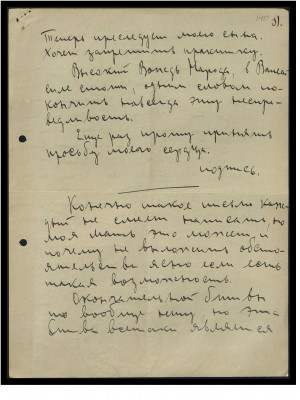 3).
Теперь преследует моего сына.
Хочет запретить практику.
Высокий Вождь Народа, в Вашей
силе стоит, одним словом по-
кончить навсегда эту неспра-
ведливость.
Еще раз прошу принять
просьбу моего сердца.
подпись.
Конечно такое письмо каж-
дый не смеет написать, но
моя мать это может, и
почему не выложить обсто-
ятельства ясно если есть
такая возможность.
Окончательной битвы
то вообще нету но эта
битва всетаки является